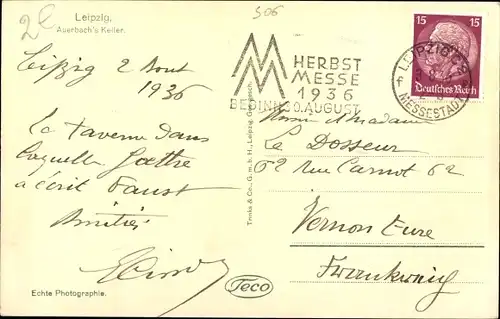 506
Leipzig.
Auerbach's Keller.
Leipzig 2 Aout
1936
La taverne dans
laquelle Goethe
a écrit Faust
Amitiés
Echte Photographie.
Trinks & Co. G. m. b. H., Leipzig.
Teco
MM HERBST
MESSE
1936
BEGINN 30. AUGUST
LEIPZIG
MESSESTADT
15 15
Deutsches Reich
Monsieur Madame
Le Dosseur
62 Rue Carnot 62
Vernon Eure
Frankreich